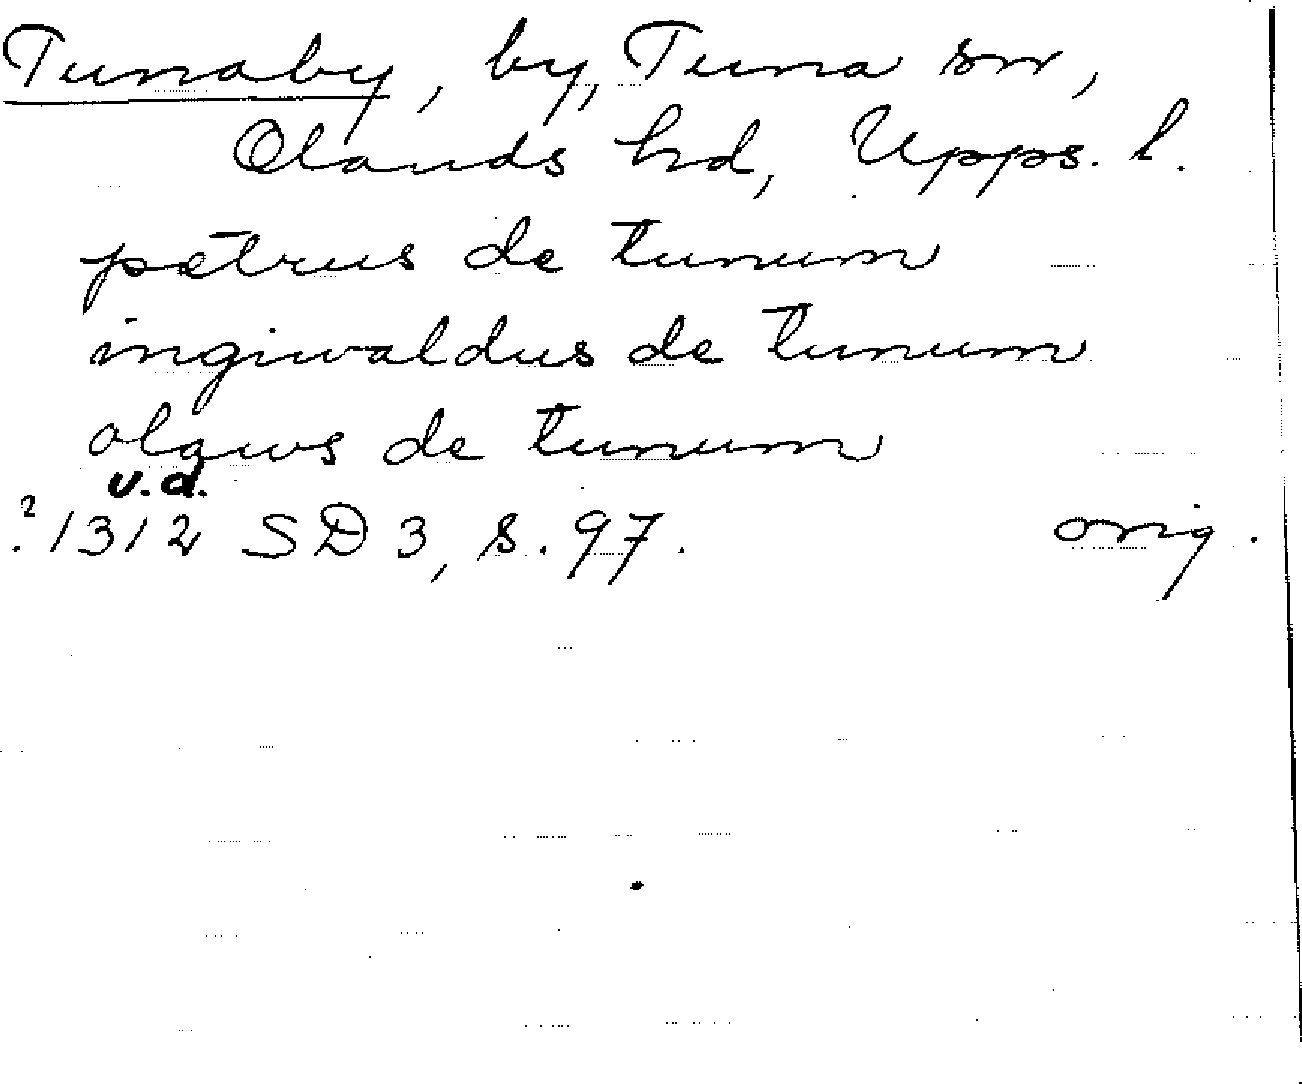 Tunaby, by, Tuna sn,
Olands hd, Upps. l.
petrus de tunum
ingiwaldus de tunum
olaws de tunum
u.d.
? 1312 SD 3, s. 97. orig.